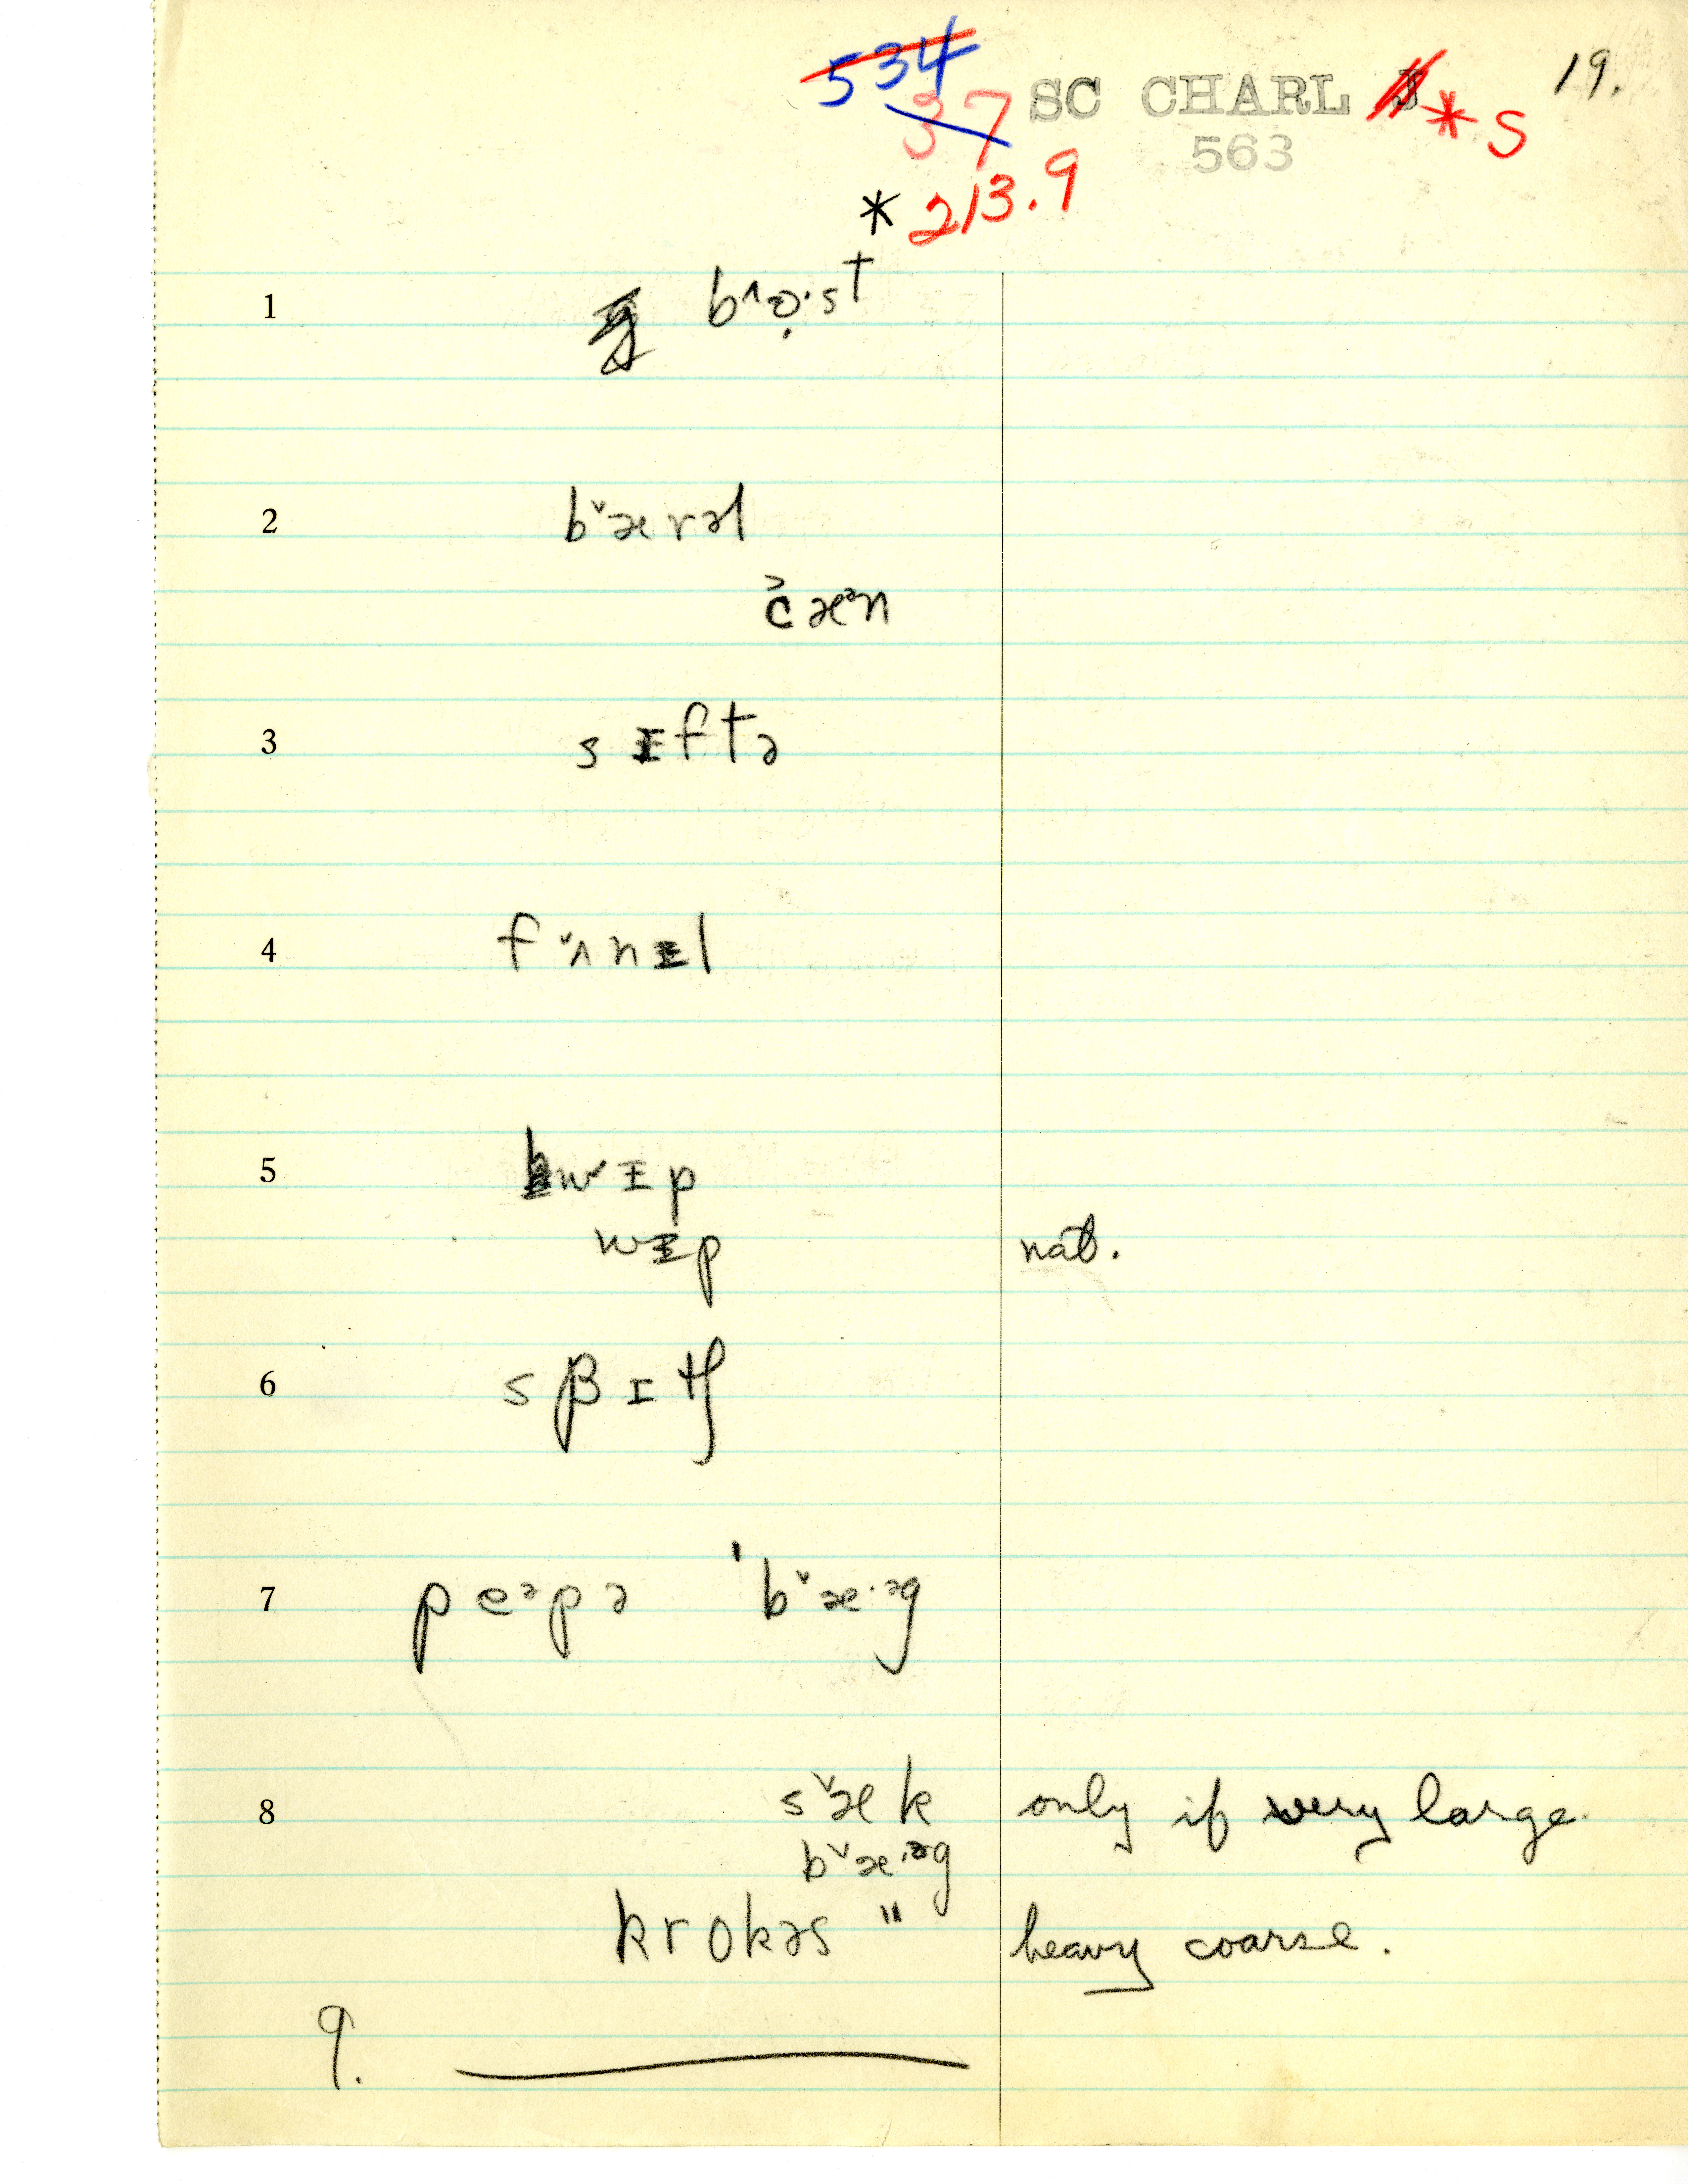 534
37 SC CHARL * S 19.
563
* 213.9
1 b^ɒ̣·st
2 b˅ærəl
č̌æᵊn
3 sɪftə
4 f˅ʌnɪl
5 hwɪp
wɪp nat.
6 sβɪtʃ
7 peᵊpə ˈb˅æ·ᵊg
8 s˅æk only if very large.
b˅æ·ᵊg
krokəs " heavy coarse.
9.